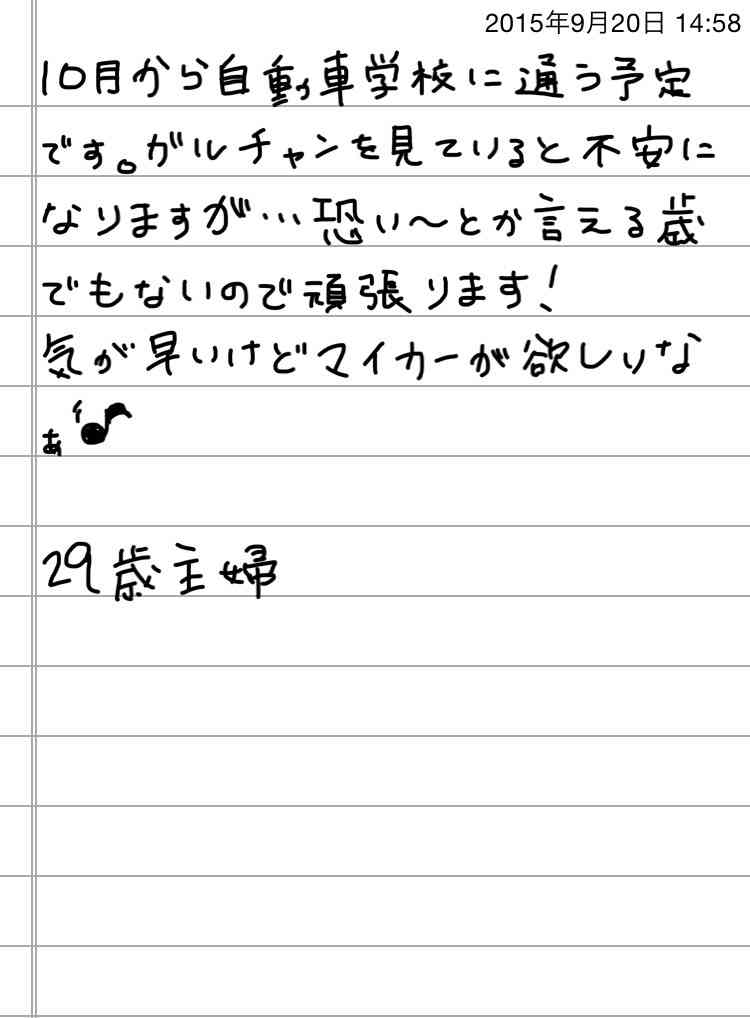 2015年9月20日 14:58
10月から自動車学校に通う予定
です。ガルチャンを見ていると不安に
なりますが…恐い〜とか言える歳
でもないので頑張ります！
気が早いけどマイカーが欲しいな
ぁ♪
29歳主婦